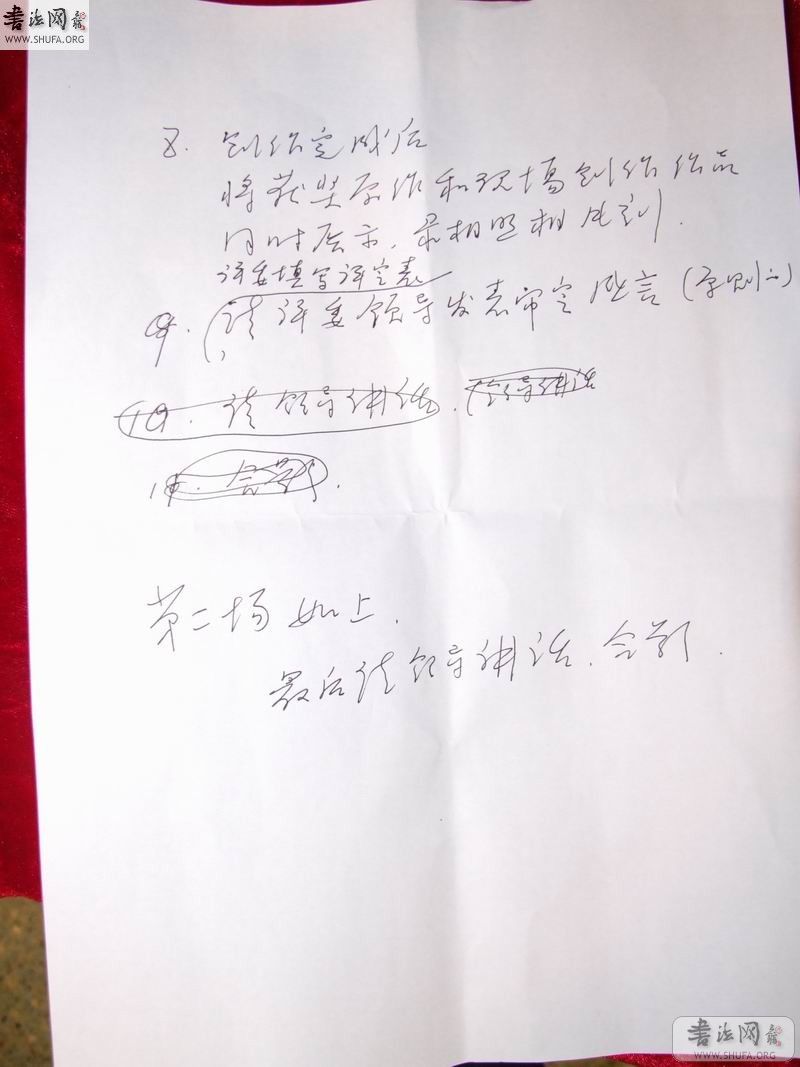 书法网
WWW.SHUFA.ORG
8. 创作完成后
将获奖原作和现场创作作品
同时展示, 录相照相
评委填写评定表
9. 请评委领导发表审定 言(原则上)
10. 请领导讲话. 领导讲话
11. 合影.
第二场如上.
最后请领导讲话、合影.
书法网
WWW.SHUFA.ORG